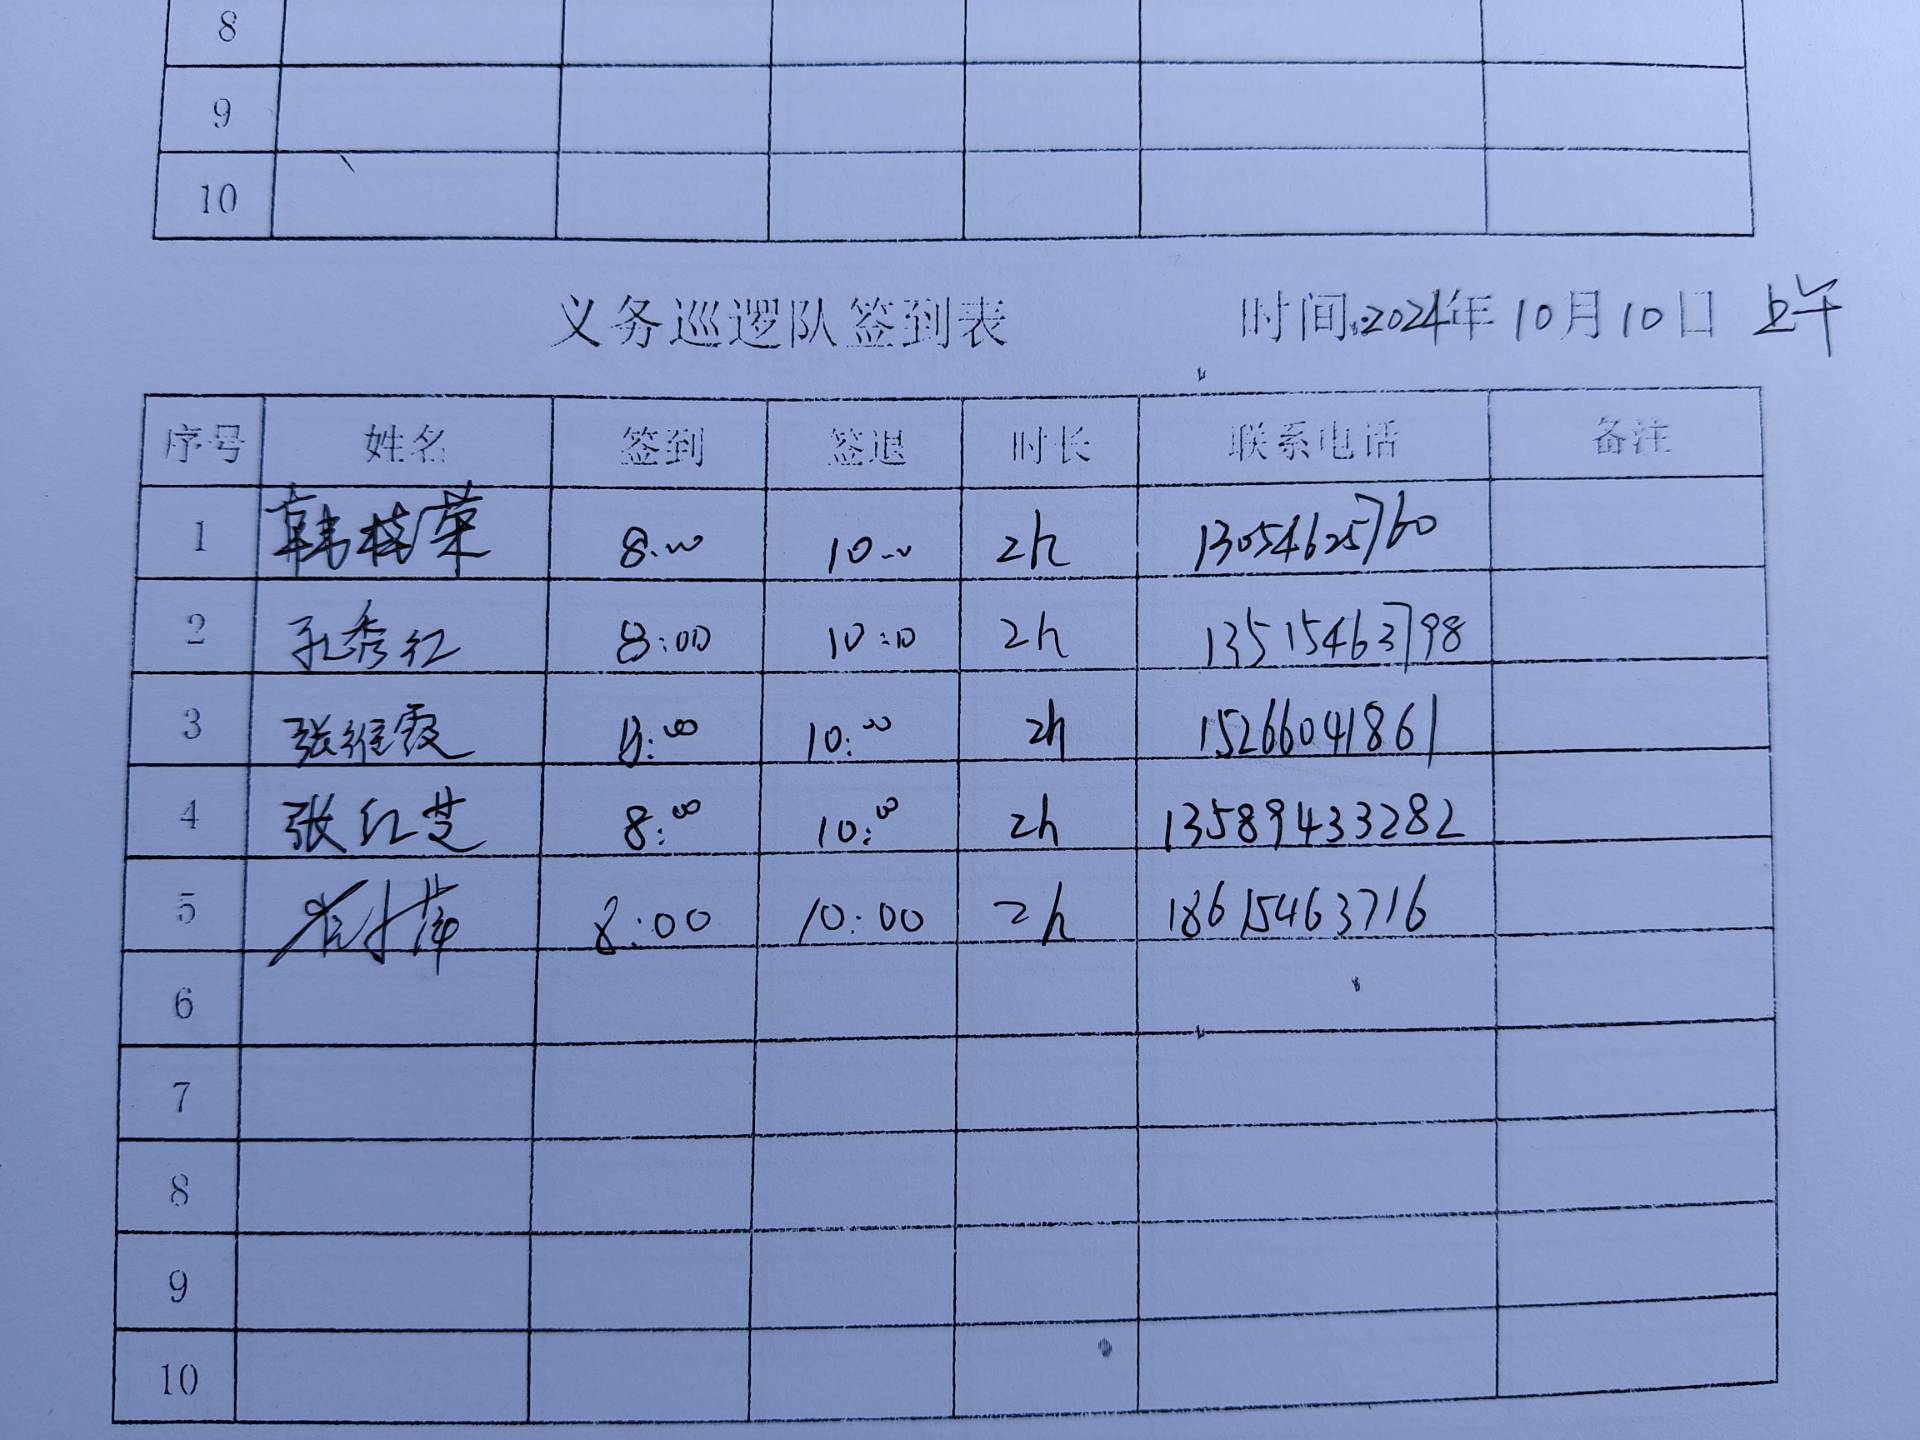 8
9
10
义务巡逻队签到表 时间:2024年10月10日 上午
序号 姓名 签到 签退 时长 联系电话 备注
1 韩桂荣 8:00 10:00 2h 13054625760
2 孔秀红 8:00 10:10 2h 13515463798
3 张维霞 8:00 10:00 2h 15266041861
4 张红芝 8:00 10:00 2h 13589433282
5 8:00 10:00 2h 18615463716
6
7
8
9
10